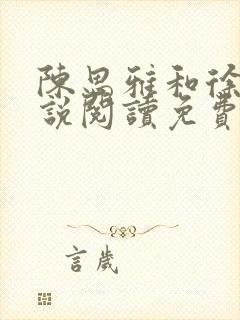 陳思雅和徐
說閱讀免費
言歲